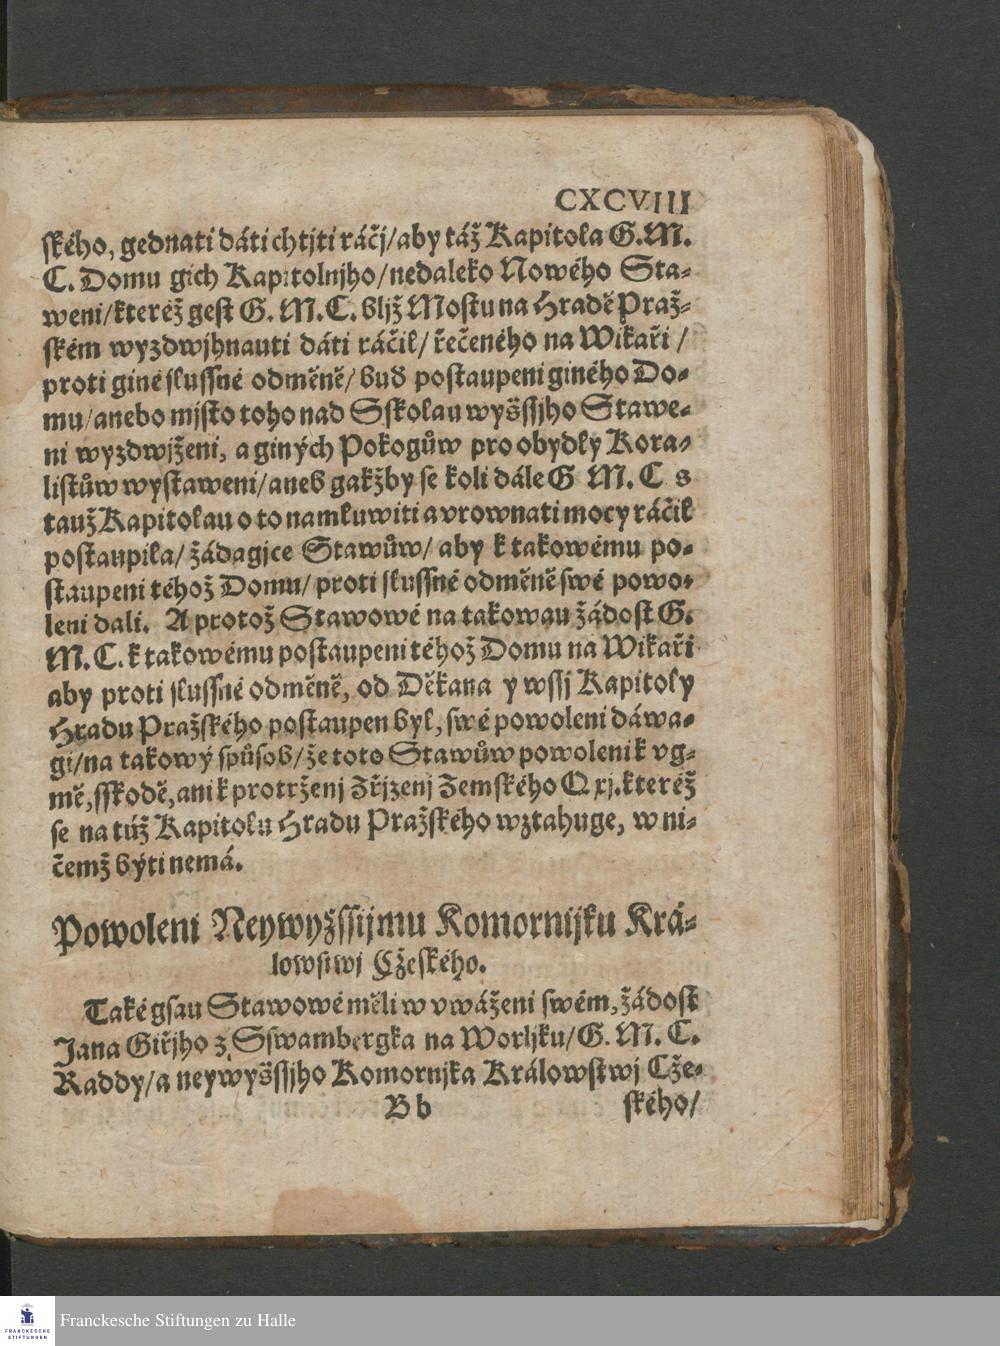 CXCVIII
ského, gednati dáti chtjti ráčj/ aby táž Kapitola G. M.
C. Domu gich Kapitolnjho/ nedaleko Nowého Sta-
weni/ kteréž gest G. M. C. bljž Mostu na Hradě Praž-
ském wyzdwjhnauti dáti ráčil/ řečeného na Wikaři /
proti giné slussné odměně/ buď postaupeni giného Do-
mu/ anebo mjsto toho nad Sskolau wyšssjho Stawe-
ni wyzdwjženi, a giných Pokogůw pro obydly Kora-
listůw wystaweni/ aneb gakžby se koli dále G M. C s
tauž Kapitolau o to namluwiti a vrownati mocy ráčil
postaupila/ žádagjce Stawůw/ aby k takowému po-
staupeni téhož Domu/ proti slussné odměně swé powo-
leni dali. A protož Stawowé na takowau žádost G.
M. C. k takowému postaupeni téhož Domu na Wikaři
aby proti slussné odměně, od Děkana y wssj Kapitoly
Hradu Pražského postaupen byl, swé powoleni dáwa-
gi/ na takowý spůsob/ že toto Stawůw powoleni k vg-
mě, sskodě, ani k protrženj Zřjzenj Zemského Q xj. kteréž
se na túž Kapitolu Hradu Pražského wztahuge, w ni-
čemž býti nemá.
Powoleni Neywyžssijmu Komornijku Krá-
lowstwj Cžeského.
Také gsau Stawowé měli w vwáženi swém, žádost
Jana Giřjho z Sswambergka na Worljku/ G. M. C.
Raddy/ a neywyšssjho Komornjka Králowstwj Cže-
B b
ského/
Franckesche Stiftungen zu Halle
FRANCKESCHE
STIFTUNGEN